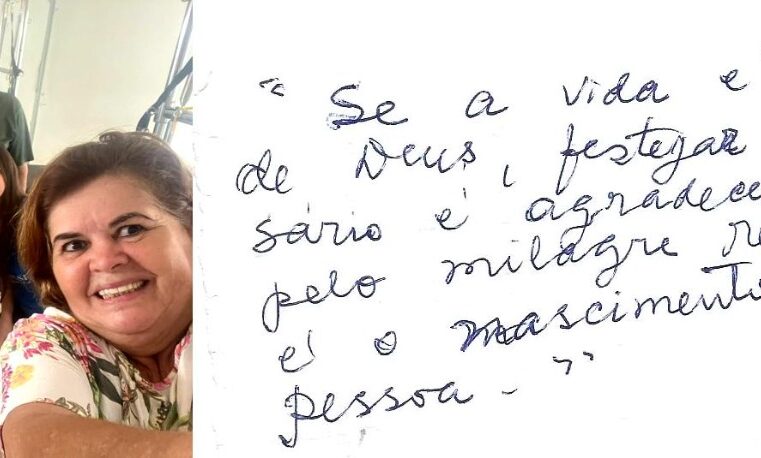 " Se a vida é
de Deus, festejar
sário é agradece
pelo milagre re
é o nascimento
pessoa - "